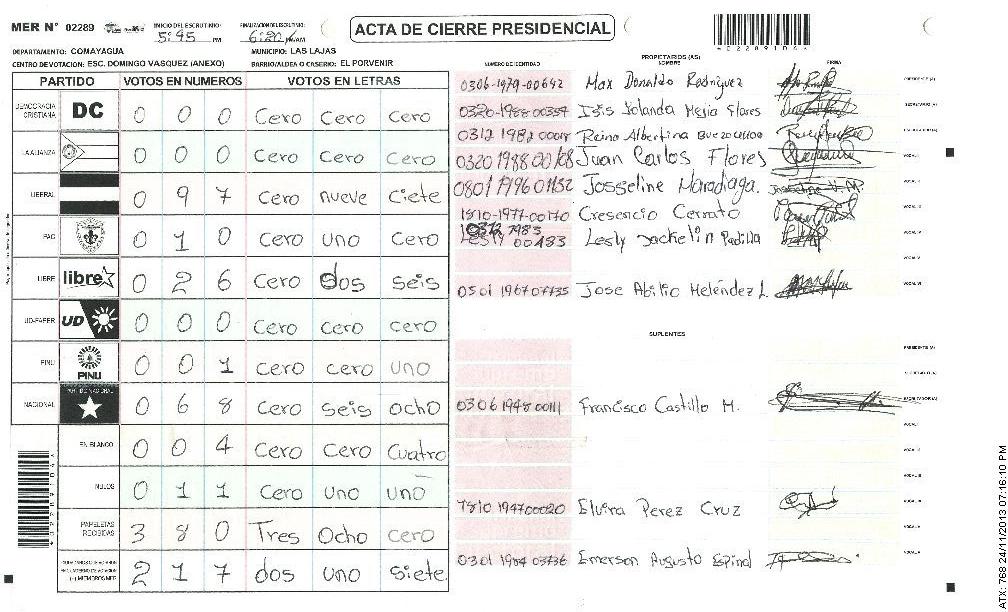 MER N° 02289
INICIO DEL ESCRUTINIO: 5:45 PM
FINALIZACION DEL ESCRUTINIO: 6:20 PM/AM
ACTA DE CIERRE PRESIDENCIAL
DEPARTAMENTO: COMAYAGUA
MUNICIPIO: LAS LAJAS
CENTRO DE VOTACION: ESC. DOMINGO VASQUEZ (ANEXO)
BARRIO/ALDEA O CASERIO: EL PORVENIR
PARTIDO VOTOS EN NUMEROS VOTOS EN LETRAS
DEMOCRACIA CRISTIANA DC 0 0 0 Cero Cero Cero
LA ALIANZA 0 0 0 Cero Cero Cero
LIBERAL 0 9 7 Cero nueve Ciete
PAC 0 1 0 Cero uno Cero
LIBRE libre 0 2 6 Cero dos seis
UD-FAPER UD 0 0 0 Cero cero cero
PINU PINU 0 0 1 Cero cero uno
NACIONAL PARTIDO NACIONAL 0 6 8 Cero seis ocho
EN BLANCO 0 0 4 Cero Cero Cuatro
NULOS 0 1 1 Cero uno uno
PAPELETAS RECIBIDAS 3 8 0 Tres Ocho cero
2 1 7 dos uno siete
NUMERO DE IDENTIDAD PROPIETARIOS (AS) FIRMA
0306-1979-00642 Max Donaldo Rodriguez PRESIDENTE (A)
Isis Yolanda Mejia Flores SECRETARIO (A)
Reina Albertina ESCRUTADOR (A)
Juan Carlos Flores VOCAL I
0801 1996 01132 Josseline Maradiaga. VOCAL II
1810-1977-00170 Cresencio Cerrato
Lesly Jackelin Padilla
0501 1967 07735 Jose Abilio Meléndez L.
SUPLENTES
PRESIDENTE (A)
SECRETARIO (A)
0306 1948 00111 Francisco Castillo M. ESCRUTADOR (A)
1810 1947 00020 Elvira Perez Cruz
0301 1984 03736 Emerson Augusto Espinal
ATX: 768 24/11/2013 07:16:10 PM